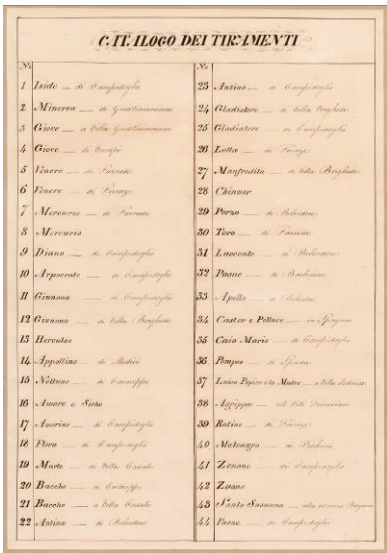 CATALOGO DEI TIRAMENTI
No
1 Iside — di Campidoglio
2 Minerva — di Giustiniani
3 Giove — a Villa Giustiniani
4 Giove — di
5 Venere — di Farnese
6 Venere — di Firenze
7 Mercurio — di Farnese
8 Mercurio
9 Diana — di Campidoglio
10 Arpocrate — di Campidoglio
11 Giunnona — di Campidoglio
12 Giunnona — di Villa Borghese
13 Hercules
14 Appollino — di Medici
15 Nettuno — di
16 Amore e Siche
17 Amorino — di Campidoglio
18 Flora — di Campidoglio
19 Marte — di Villa
20 Baccho — di
21 Baccho — a Villa
22 Antino — di Belvedere
No
23 Antino — di Campidoglio
24 Gladiatore — di Villa Borghese
25 Gladiatore — di Campidoglio
26 Lotta — di Firenze
27 Manfrodita — di Villa Borghese
28 Chinner
29 Porzo — di Belvedere
30 Toro — di Farnese
31 Laocoonte — di Belvedere
32 Paone — di Barberini
33 Apollo — di Belvedere
34 Castor e Polluco — in Spagna
35 Caio Mario — di Campidoglio
36 Pompeo — di Spada
37 Lucio Papiro e la Madre — a Villa Ludovisi
38 Agrippa
39 Rotino — di Firenze
40 Meleagro — di Pichini
41 Zenone — di Campidoglio
42 Zaone
43 Santo Susanna — alla
44 Paone — di Campidoglio